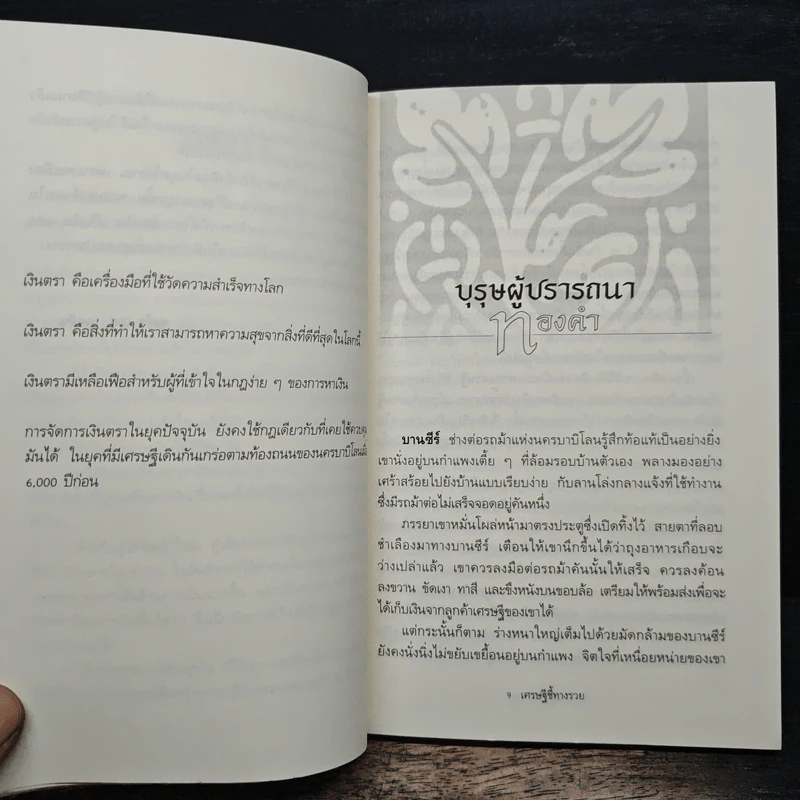 เงินตรา คือเครื่องมือที่ใช้วัดความสำเร็จทางโลก
เงินตรา คือสิ่งที่ทำให้เราสามารถหาความสุขจากสิ่งที่ดีที่สุดในโลกนี้
เงินตรามีเหลือเฟือสำหรับผู้ที่เข้าใจในกฎง่าย ๆ ของการหาเงิน
การจัดการเงินตราในยุคปัจจุบัน ยังคงใช้กฎเดียวกับที่เคยใช้ควบคุม
มันได้ ในยุคที่มีเศรษฐีเดินกันเกร่อตามท้องถนนของนครบาบิโลนเมื่อ
6,000 ปีก่อน
บุรุษผู้ปรารถนา
ทองคำ
บานซีร์ ช่างต่อรถม้าแห่งนครบาบิโลนรู้สึกท้อแท้เป็นอย่างยิ่ง
เขานั่งอยู่บนกำแพงเตี้ย ๆ ที่ล้อมรอบบ้านตัวเอง พลางมองอย่าง
เศร้าสร้อยไปยังบ้านแบบเรียบง่าย กับลานโล่งกลางแจ้งที่ใช้ทำงาน
ซึ่งมีรถม้าต่อไม่เสร็จจอดอยู่คันหนึ่ง
ภรรยาเขาหมั่นโผล่หน้ามาตรงประตูซึ่งเปิดทิ้งไว้ สายตาที่ลอบ
ชำเลืองมาทางบานซีร์ เตือนให้เขานึกขึ้นได้ว่าถุงอาหารเกือบจะ
ว่างเปล่าแล้ว เขาควรลงมือต่อรถม้าคันนั้นให้เสร็จ ควรลงค้อน
ลงขวาน ขัดเงา ทาสี และขึงหนังบนขอบล้อ เตรียมให้พร้อมส่งเพื่อจะ
ได้เก็บเงินจากลูกค้าเศรษฐีของเขาได้
แต่กระนั้นก็ตาม ร่างหนาใหญ่เต็มไปด้วยมัดกล้ามของบานซีร์
ยังคงนั่งนิ่งไม่ขยับเขยื้อนอยู่บนกำแพง จิตใจที่เหนื่อยหน่ายของเขา
9 เศรษฐีชี้ทางรวย